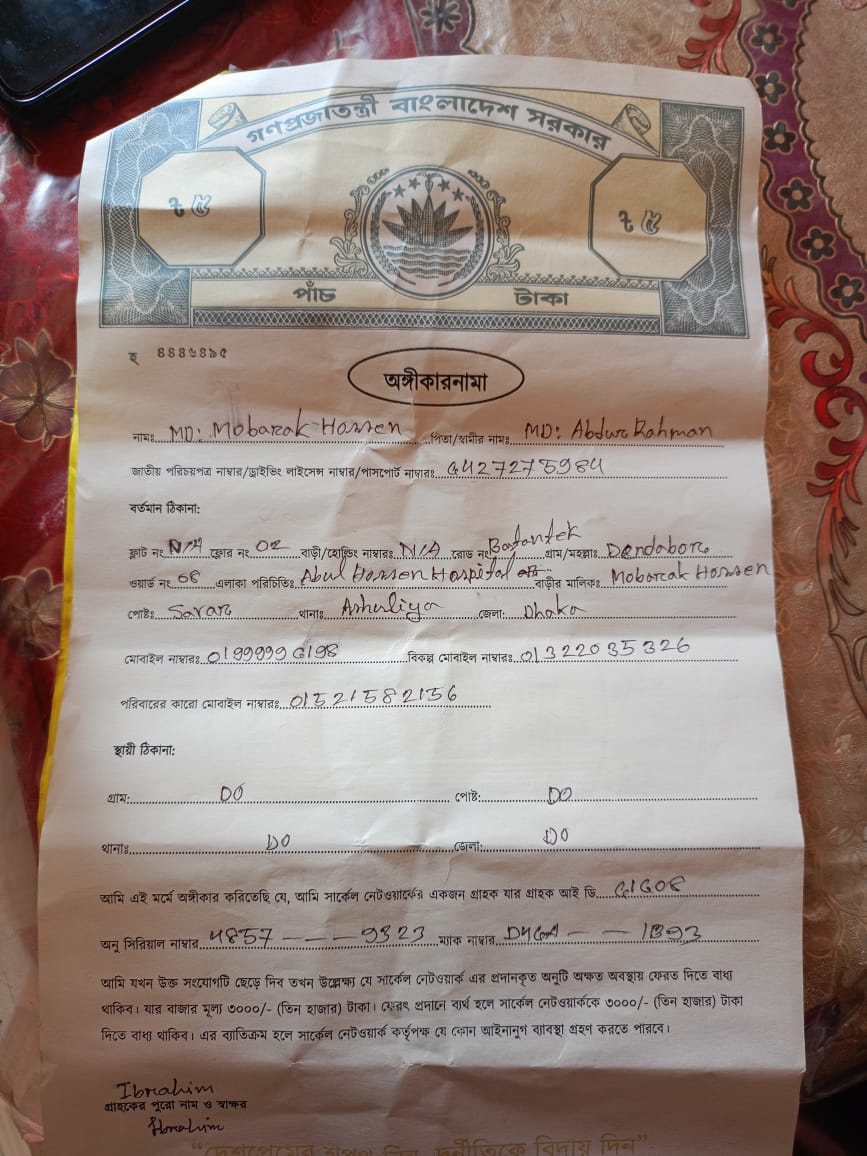 গণপ্রজাতন্ত্রী বাংলাদেশ সরকার
৳ ৫ ৳ ৫
পাঁচ টাকা
হ ৪৪৪৬৪৯৫
অঙ্গীকারনামা
নামঃ MD: Mobarak Hossen পিতা/স্বামীর নামঃ MD: Abdur Rahman
জাতীয় পরিচয়পত্র নাম্বার/ড্রাইভিং লাইসেন্স নাম্বার/পাসপোর্ট নাম্বারঃ 6427275984
বর্তমান ঠিকানা:
ফ্লাট নং N/A ফ্লোর নং 02 বাড়ী/হোল্ডিং নাম্বারঃ N/A রোড নং গ্রাম/মহল্লাঃ Dendabor
ওয়ার্ড নং 08 এলাকা পরিচিতিঃ Abul Hossen Hospital বাড়ীর মালিকঃ Mobarak Hossen
পোষ্টঃ Savar থানাঃ Ashuliya জেলা: Dhaka
মোবাইল নাম্বারঃ 01999996198 বিকল্প মোবাইল নাম্বারঃ 01322035326
পরিবারের কারো মোবাইল নাম্বারঃ 01521582156
স্থায়ী ঠিকানা:
গ্রাম: DO পোষ্ট: DO
থানাঃ DO জেলা: DO
আমি এই মর্মে অঙ্গীকার করিতেছি যে, আমি সার্কেল নেটওয়ার্কের একজন গ্রাহক যার গ্রাহক আই ডি 61608
অনু সিরিয়াল নাম্বার 4857 - - - 9323 ম্যাক নাম্বার D46A - - 1B93
আমি যখন উক্ত সংযোগটি ছেড়ে দিব তখন উল্লেক্ষ্য যে সার্কেল নেটওয়ার্ক এর প্রদানকৃত অনুটি অক্ষত অবস্থায় ফেরত দিতে বাধ্য
থাকিব। যার বাজার মূল্য ৩০০০/- (তিন হাজার) টাকা। ফেরৎ প্রদানে ব্যর্থ হলে সার্কেল নেটওয়ার্ককে ৩০০০/- (তিন হাজার) টাকা
দিতে বাধ্য থাকিব। এর ব্যাতিক্রম হলে সার্কেল নেটওয়ার্ক কর্তৃপক্ষ যে কোন আইনানুগ ব্যাবস্থা গ্রহণ করতে পারবে।
Ibrahim
গ্রাহকের পুরো নাম ও স্বাক্ষর
Ibrahim
“দেশপ্রেমের শপথ নিন, দুর্নীতিকে বিদায় দিন”